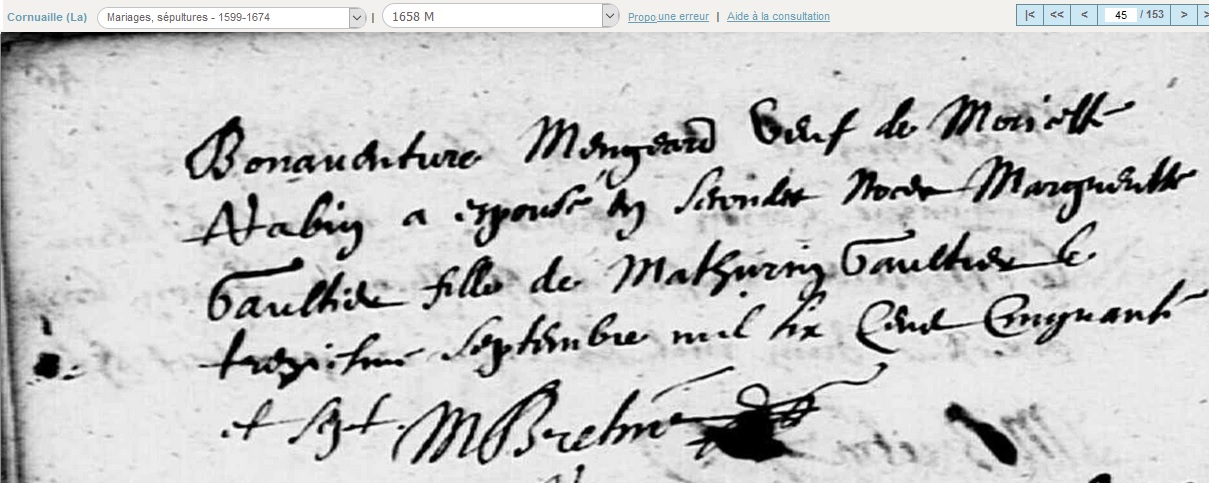 Cornuaille (La) Mariages, sépultures - 1599-1674 | 1658 M Propo une erreur | Aide à la consultation |< << < 45 / 153 >
Bonauenture Mengeard Veuf de
Nabin a espousé en secondes Noces Margueritte
Gaultier fille de Mathurin Gaultier le
treziesme septembre mil six Cens Cinquante
et sept. M Bretin